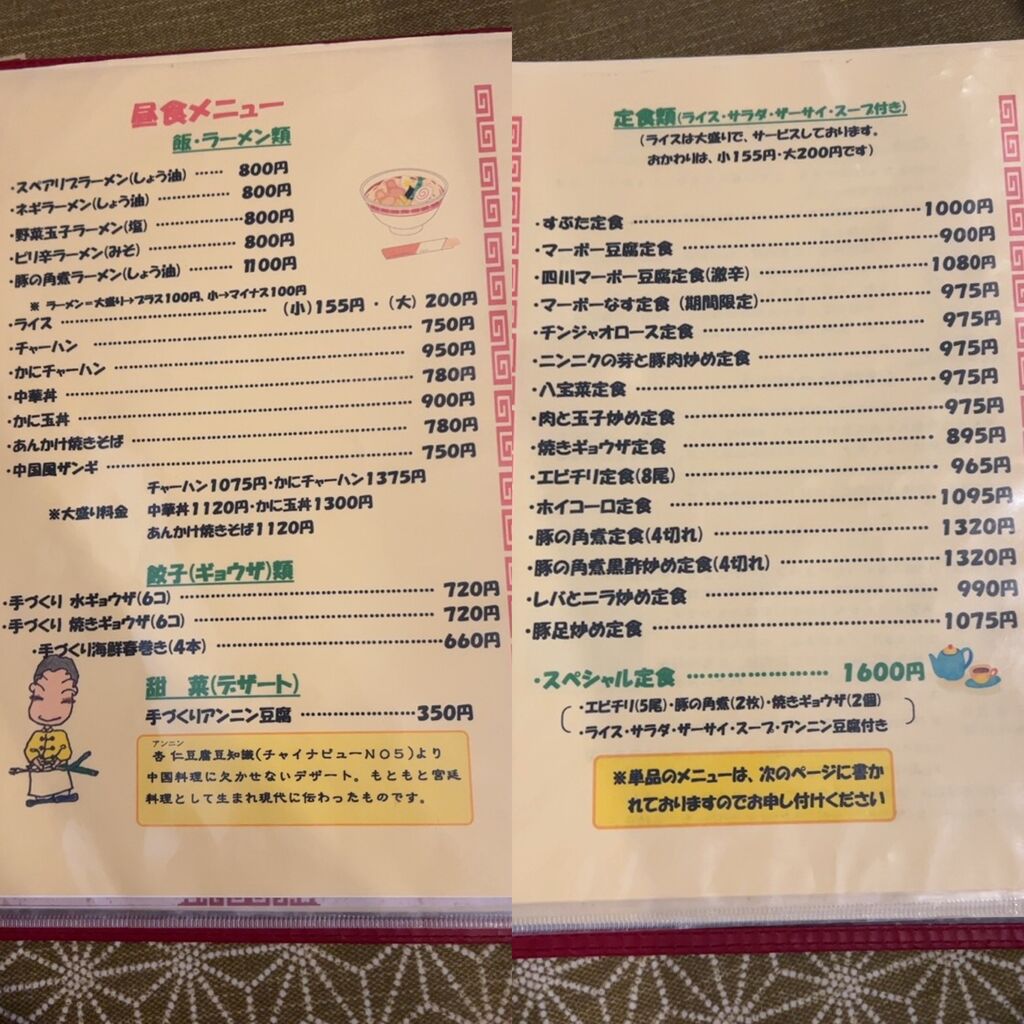 昼食メニュー
飯・ラーメン類
・スペアリブラーメン(しょう油) …… 800円
・ネギラーメン(しょう油) ………… 800円
・野菜玉子ラーメン(塩) ………… 800円
・ピリ辛ラーメン(みそ) ………… 800円
・豚の角煮ラーメン(しょう油) ……… 1100円
※ ラーメン=大盛り→プラス100円、小→マイナス100円
・ライス ……………………… (小)155円 ・ (大) 200円
・チャーハン ……………………… 750円
・かにチャーハン ……………………… 950円
・中華丼 ……………………… 780円
・かに玉丼 ……………………… 900円
・あんかけ焼きそば ……………………… 780円
・中国風ザンギ ……………………… 750円
チャーハン1075円・かにチャーハン1375円
※大盛り料金 中華丼1120円・かに玉丼1300円
あんかけ焼きそば1120円
餃子(ギョウザ)類
・手づくり 水ギョウザ(6コ) ……………………… 720円
・手づくり 焼きギョウザ(6コ) ……………………… 720円
・手づくり海鮮春巻き(4本) ……………………… 660円
甜 菜(デザート)
手づくりアンニン豆腐 ……………… 350円
アンニン
杏仁豆腐豆知識(チャイナビューNO5)より
中国料理に欠かせないデザート。もともと宮廷
料理として生まれ現代に伝わったものです。
定食類(ライス・サラダ・ザーサイ・スープ付き)
(ライスは大盛りで、サービスしております。
おかわりは、小155円・大200円です)
・すぶた定食 ……………………… 1000円
・マーボー豆腐定食 ……………………… 900円
・四川マーボー豆腐定食(激辛) ……………………… 1080円
・マーボーなす定食 (期間限定) ……………………… 975円
・チンジャオロース定食 ……………………… 975円
・ニンニクの芽と豚肉炒め定食 ……………………… 975円
・八宝菜定食 ……………………… 975円
・肉と玉子炒め定食 ……………………… 975円
・焼きギョウザ定食 ……………………… 895円
・エビチリ定食(8尾) ……………………… 965円
・ホイコーロ定食 ……………………… 1095円
・豚の角煮定食(4切れ) ……………………… 1320円
・豚の角煮黒酢炒め定食(4切れ) ……………… 1320円
・レバとニラ炒め定食 ……………………… 990円
・豚足炒め定食 ……………………… 1075円
・スペシャル定食 ……………… 1600円
・エビチリ(5尾)・豚の角煮(2枚)・焼きギョウザ(2個)
・ライス・サラダ・ザーサイ・スープ・アンニン豆腐付き
※単品のメニューは、次のページに書か
れておりますのでお申し付けください